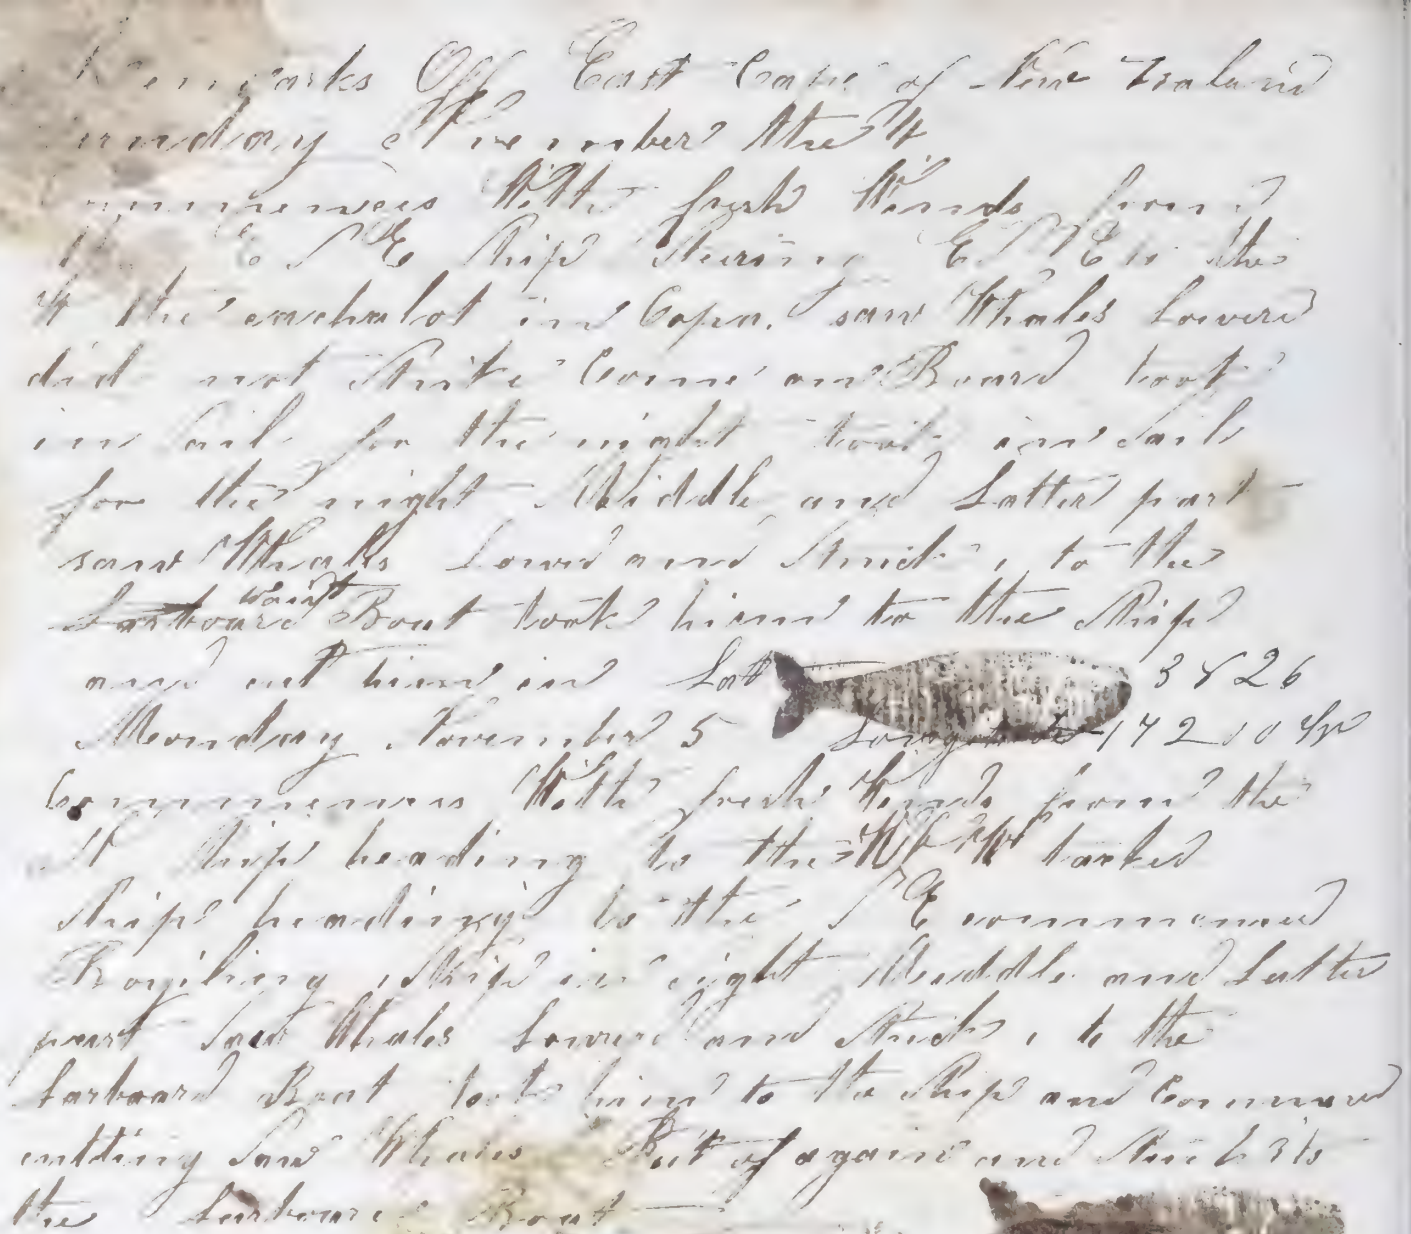 Remarks Off East Cape of New Zealand
Sunday November the 4
Commences With fresh Winds from
the E S E Ship Steering E S E to the
the cachalot in Copn. saw Whales Lowerd
did not Strike Come on Board took
in Sail for the night took in Sail
for the night Middle and Latter part
saw Whales Lowd and Struck 1 to the
Larboard waist Boat took him to the Ship
and cut him in Lat 38 26
Monday November 5 Longitude 172 10 W
Commences With fresh Winds from the
N Ship heading to the tacked
Ship heading to the S E commenced
Boyiling Ship in sight Meddle and Latter
part Saw Whales Lowerd and Struck 1 to the
Larboard Boat took him to the Ship and Commenced
cutting Saw Whales Put of again and Struck 3 to
the Larboard Boat